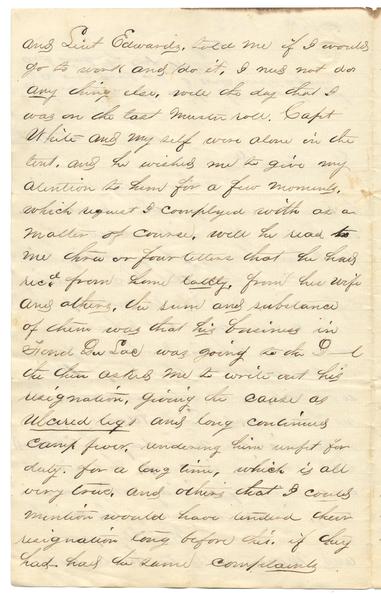 and Liut Edwards, told me if I would
go to work and do it, I need not do
any thing else, well the day that I
was on the last muster role. Capt
White and my self were alone in the
tent, and he wished me to give my
atention to him for a few moments,
which request I complyed with as a
matter of course, well he read to
me three or four letters that he had
recd from home lately, from his wife
and others, the sum and substance
of them was that his business in
Fond Du Lac was going to the D—l
he then asked me to write out his
resignation, giving the cause as
Ulcered legs and long continued
camp fever, rendering him unfit for
duty. for a long time, which is all
very true, and others that I could
mention would have tendered their
resignation long before this. if they
had had the same complaints